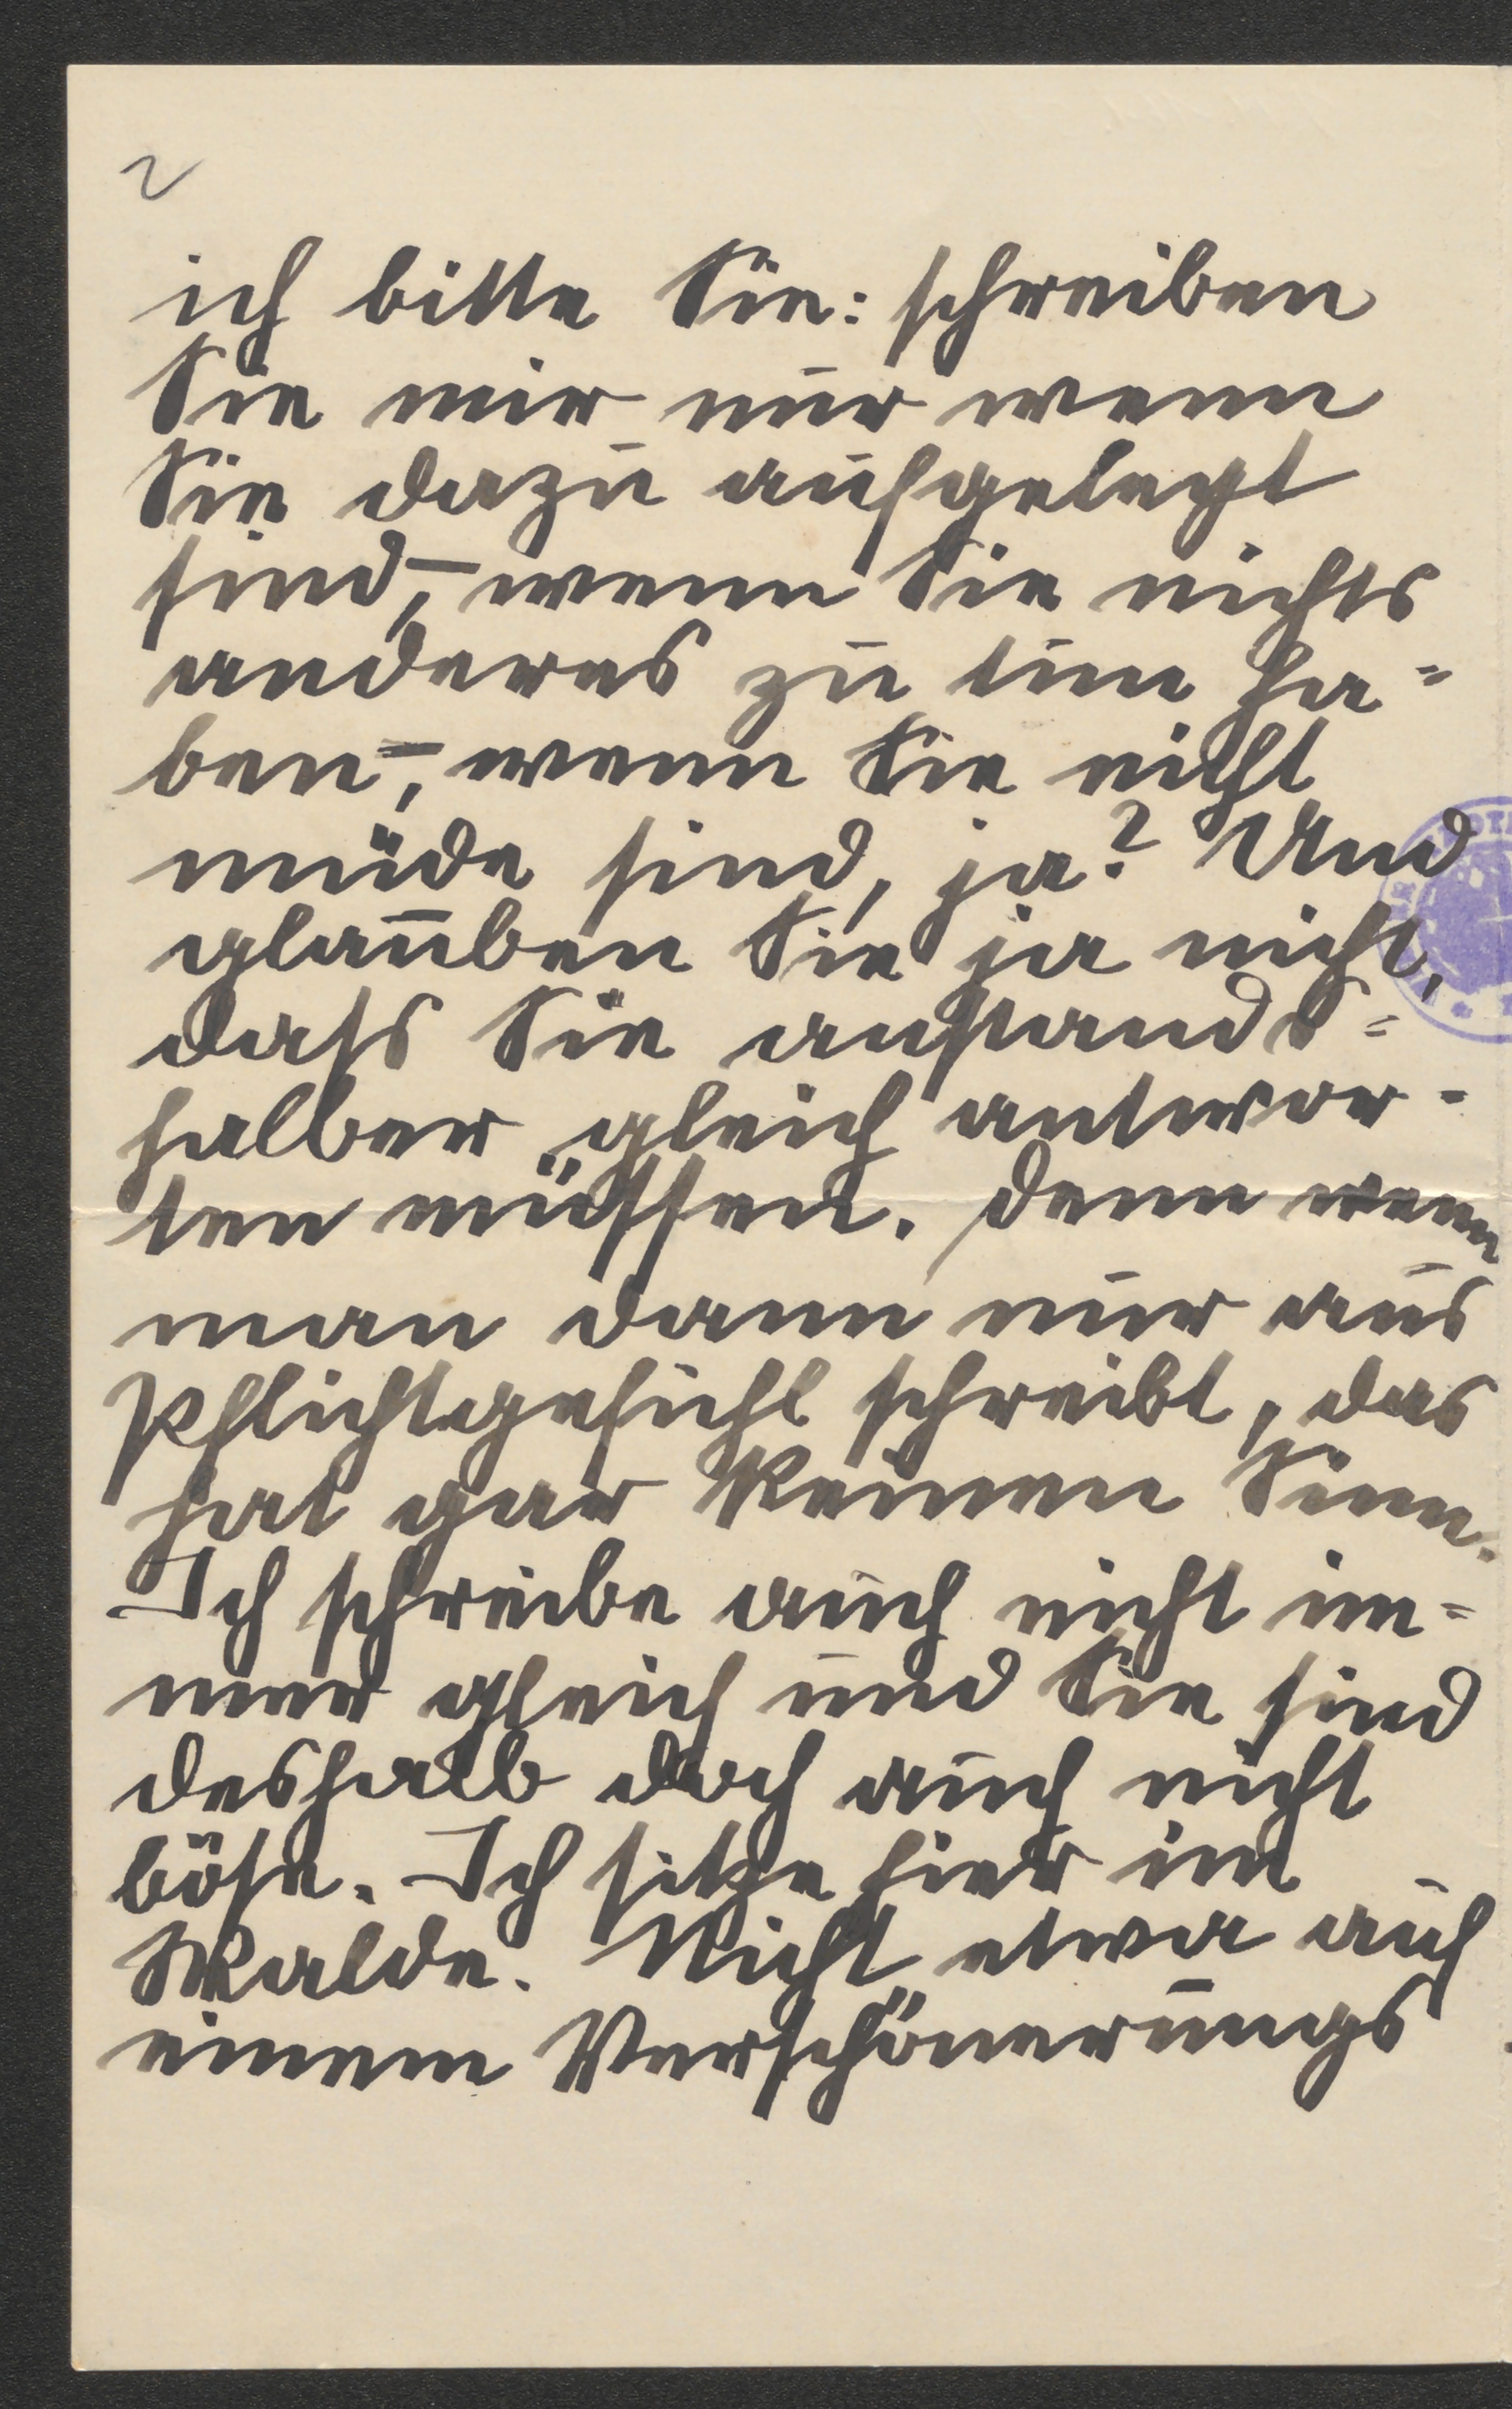 2
ich bitte Sie: schreiben
Sie mir nur wenn
Sie dazu aufgelegt
sind, – wenn Sie nichts
anderes zu tun ha-
ben –, wenn Sie nicht
müde sind, ja? Und
glauben Sie ja nicht,
dass Sie anstands-
halber gleich antwor-
ten müssen. Denn wenn
man dann nur aus
Pflichtgefühl schreibt, das
hat gar keinen Sinn.
Ich schreibe auch nicht im-
mer gleich und Sie sind
deshalb doch auch nicht
böse. Ich sitze hier im
Walde. Nicht etwa auf
einem Verschönerungs